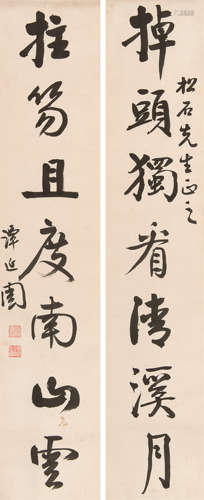 掉頭獨看清溪月
松石先生正之
拄笏且度南山雲
譚延闓